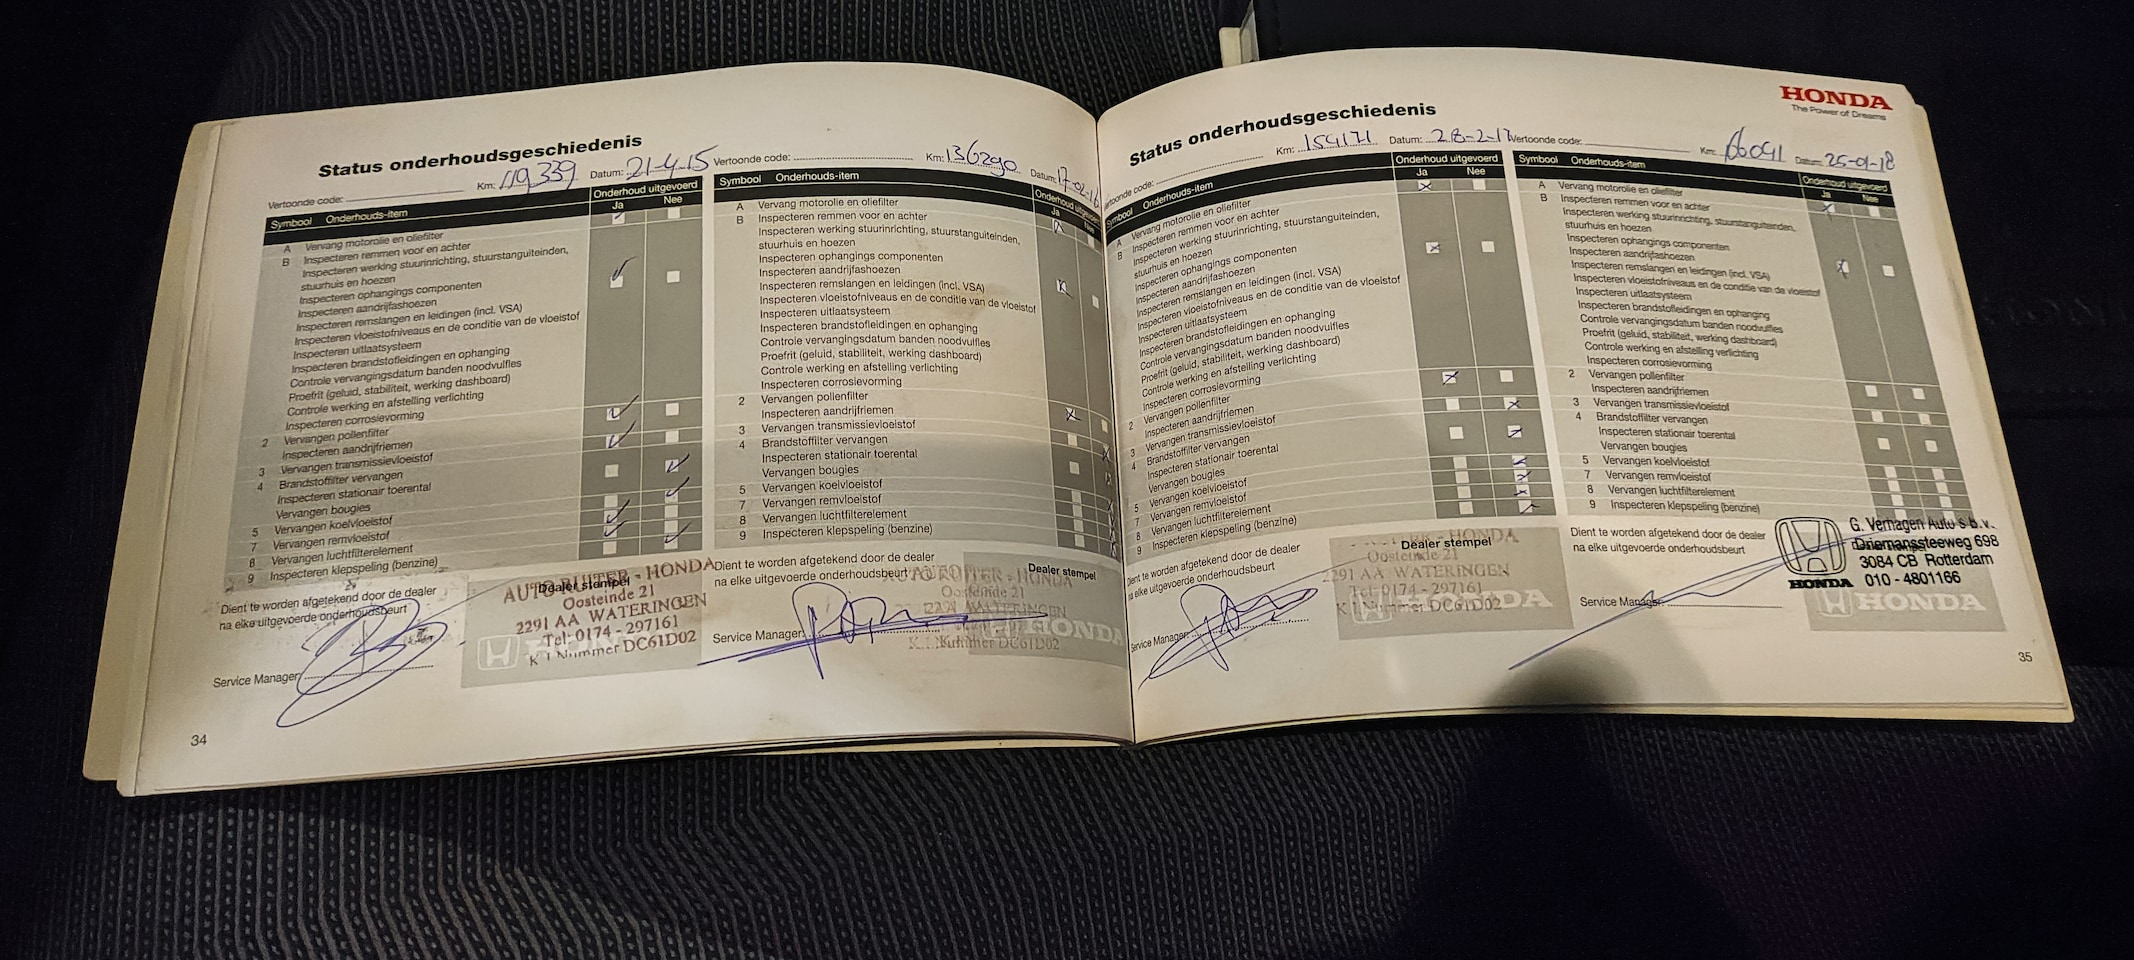 Status onderhoudsgeschiedenis
Vertoonde code: Km: 119.339 Datum: 21-4-15
Symbool Onderhouds-item Onderhoud uitgevoerd
Ja Nee
A Vervang motorolie en oliefilter
B Inspecteren remmen voor en achter
Inspecteren werking stuurinrichting, stuurstanguiteinden,
stuurhuis en hoezen
Inspecteren ophangings componenten
Inspecteren aandrijfashoezen
Inspecteren remslangen en leidingen (incl. VSA)
Inspecteren vloeistofniveaus en de conditie van de vloeistof
Inspecteren uitlaatsysteem
Inspecteren brandstofleidingen en ophanging
Controle vervangingsdatum banden noodvulfles
Proefrit (geluid, stabiliteit, werking dashboard)
Controle werking en afstelling verlichting
Inspecteren corrosievorming
2 Vervangen pollenfilter
Inspecteren aandrijfriemen
3 Vervangen transmissievloeistof
4 Brandstoffilter vervangen
Inspecteren stationair toerental
Vervangen bougies
5 Vervangen koelvloeistof
7 Vervangen remvloeistof
8 Vervangen luchtfilterelement
9 Inspecteren klepspeling (benzine)
Dient te worden afgetekend door de dealer
na elke uitgevoerde onderhoudsbeurt
Service Manager:
Dealer stempel
AUTO RUITER - HONDA
Oosteinde 21
2291 AA WATERINGEN
Tel: 0174 - 297161
K Nummer DC61D02
34
Vertoonde code: Km: 136290 Datum: 17-02-16
Symbool Onderhouds-item Onderhoud uitgevoerd
Ja
A Vervang motorolie en oliefilter
B Inspecteren remmen voor en achter
Inspecteren werking stuurinrichting, stuurstanguiteinden,
stuurhuis en hoezen
Inspecteren ophangings componenten
Inspecteren aandrijfashoezen
Inspecteren remslangen en leidingen (incl. VSA)
Inspecteren vloeistofniveaus en de conditie van de vloeistof
Inspecteren uitlaatsysteem
Inspecteren brandstofleidingen en ophanging
Controle vervangingsdatum banden noodvulfles
Proefrit (geluid, stabiliteit, werking dashboard)
Controle werking en afstelling verlichting
Inspecteren corrosievorming
2 Vervangen pollenfilter
Inspecteren aandrijfriemen
3 Vervangen transmissievloeistof
4 Brandstoffilter vervangen
Inspecteren stationair toerental
Vervangen bougies
5 Vervangen koelvloeistof
7 Vervangen remvloeistof
8 Vervangen luchtfilterelement
9 Inspecteren klepspeling (benzine)
Dient te worden afgetekend door de dealer
na elke uitgevoerde onderhoudsbeurt
Service Manager:
Dealer stempel
AUTO RUITER - HONDA
Oosteinde 21
WATERINGEN
Nummer DC61D02
HONDA
HONDA
The Power of Dreams
Status onderhoudsgeschiedenis
Vertoonde code: Km: 154171 Datum: 28-2-17
Symbool Onderhouds-item Onderhoud uitgevoerd
Ja Nee
A Vervang motorolie en oliefilter
B Inspecteren remmen voor en achter
Inspecteren werking stuurinrichting, stuurstanguiteinden,
stuurhuis en hoezen
Inspecteren ophangings componenten
Inspecteren aandrijfashoezen
Inspecteren remslangen en leidingen (incl. VSA)
Inspecteren vloeistofniveaus en de conditie van de vloeistof
Inspecteren uitlaatsysteem
Inspecteren brandstofleidingen en ophanging
Controle vervangingsdatum banden noodvulfles
Proefrit (geluid, stabiliteit, werking dashboard)
Controle werking en afstelling verlichting
Inspecteren corrosievorming
2 Vervangen pollenfilter
Inspecteren aandrijfriemen
3 Vervangen transmissievloeistof
4 Brandstoffilter vervangen
Inspecteren stationair toerental
Vervangen bougies
5 Vervangen koelvloeistof
7 Vervangen remvloeistof
8 Vervangen luchtfilterelement
9 Inspecteren klepspeling (benzine)
Dient te worden afgetekend door de dealer
na elke uitgevoerde onderhoudsbeurt
Service Manager:
Dealer stempel
HONDA
Oosteinde 21
2291 AA WATERINGEN
Tel: 0174 - 297161
K Nummer DC61D02
HONDA
Vertoonde code: Km: 66041 Datum: 25-01-18
Symbool Onderhouds-item Onderhoud uitgevoerd
Ja Nee
A Vervang motorolie en oliefilter
B Inspecteren remmen voor en achter
Inspecteren werking stuurinrichting, stuurstanguiteinden,
stuurhuis en hoezen
Inspecteren ophangings componenten
Inspecteren aandrijfashoezen
Inspecteren remslangen en leidingen (incl. VSA)
Inspecteren vloeistofniveaus en de conditie van de vloeistof
Inspecteren uitlaatsysteem
Inspecteren brandstofleidingen en ophanging
Controle vervangingsdatum banden noodvulfles
Proefrit (geluid, stabiliteit, werking dashboard)
Controle werking en afstelling verlichting
Inspecteren corrosievorming
2 Vervangen pollenfilter
Inspecteren aandrijfriemen
3 Vervangen transmissievloeistof
4 Brandstoffilter vervangen
Inspecteren stationair toerental
Vervangen bougies
5 Vervangen koelvloeistof
7 Vervangen remvloeistof
8 Vervangen luchtfilterelement
9 Inspecteren klepspeling (benzine)
Dient te worden afgetekend door de dealer
na elke uitgevoerde onderhoudsbeurt
Service Manager:
HONDA
G. Verhagen Auto's b.v.
Driemanssteeweg 698
3084 CB Rotterdam
010 - 4801166
HONDA
35